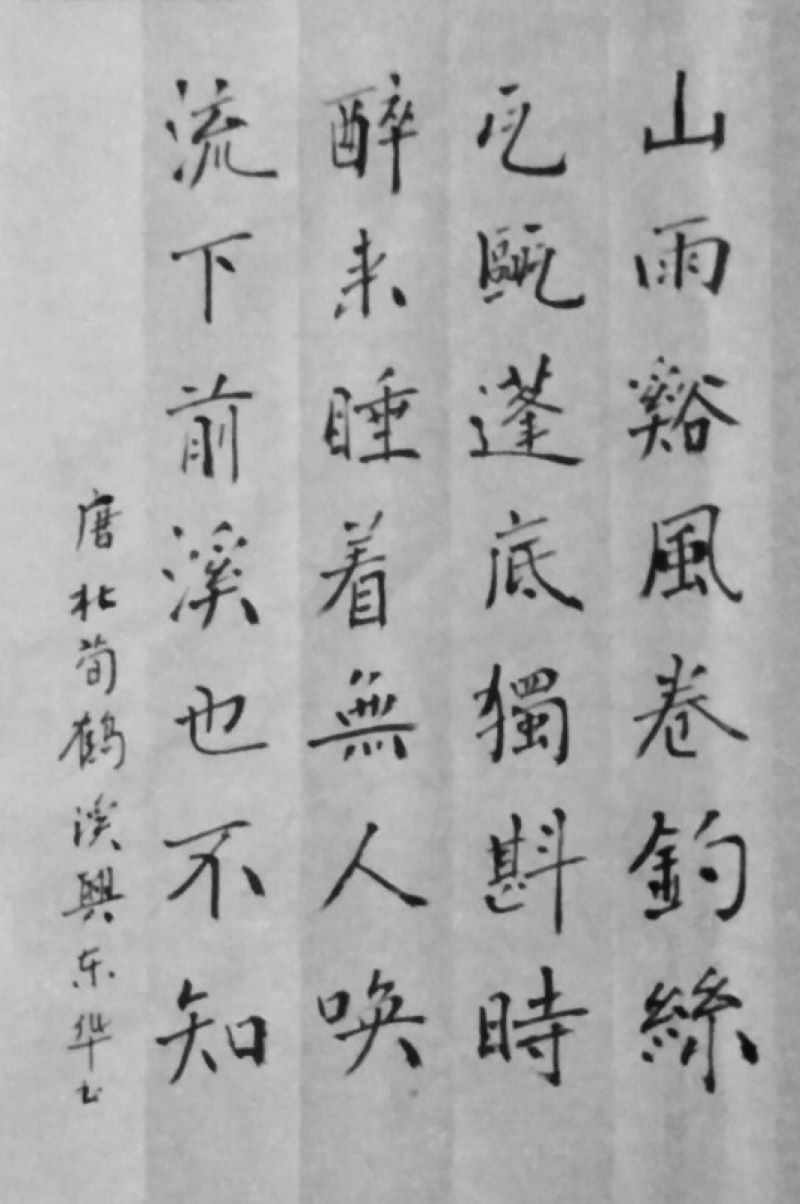 山雨谿風卷釣絲
瓦甌蓬底獨斟時
醉来睡着無人唤
流下前溪也不知
唐杜荀鶴溪興东华书